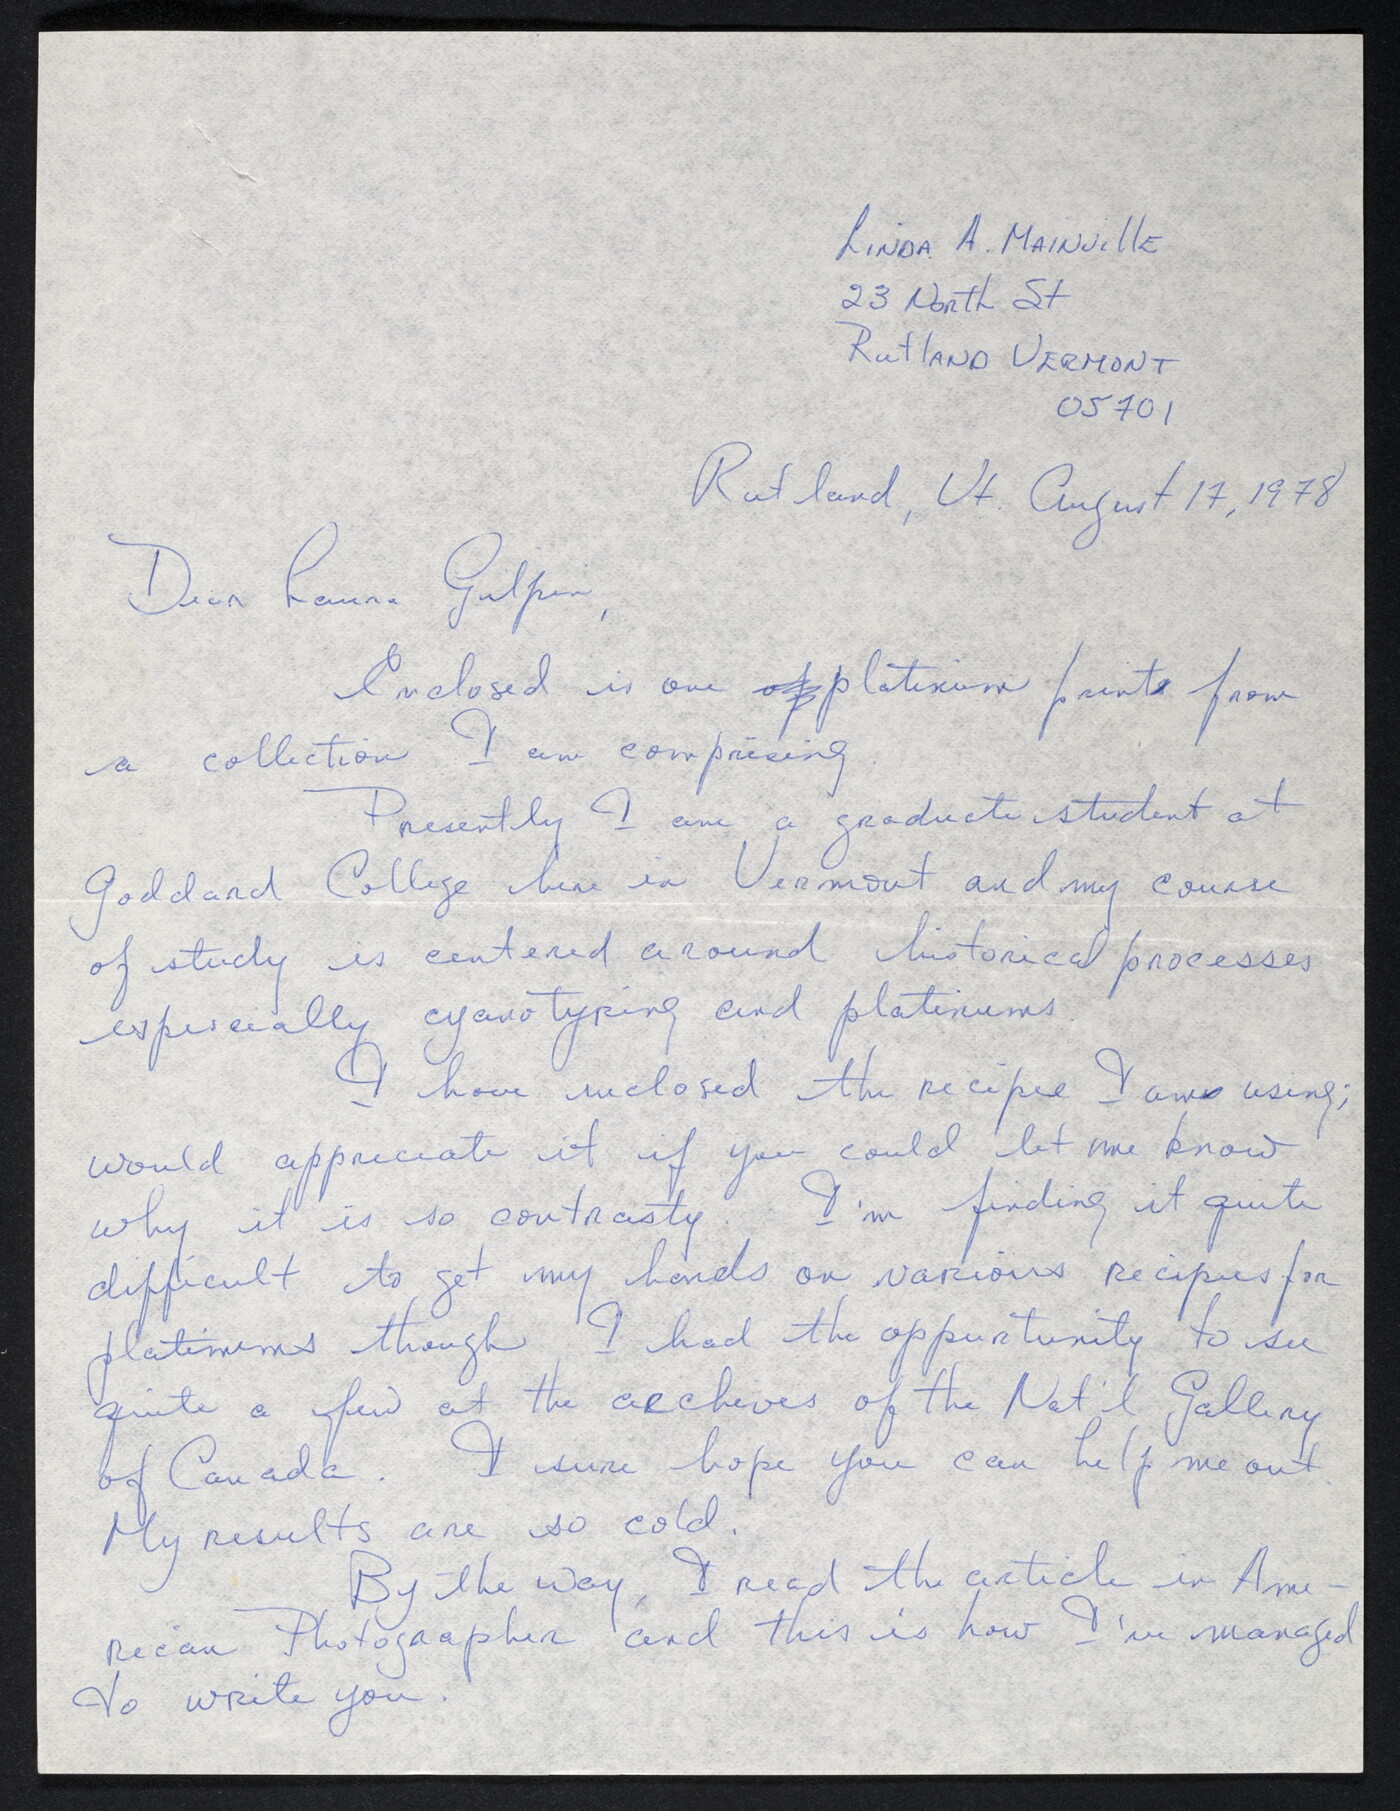 Linda A. Mainville
23 North St
Rutland Vermont
05701
Rutland, Vt. August 17, 1978
Dear Laura Gilpin,
Enclosed is one platinum print from
a collection I am comprising.
Presently I am a graduate student at
Goddard College here in Vermont and my course
of study is centered around historical processes
especially cyanotyping and platinums.
I have enclosed the recipe I am using;
would appreciate it if you could let me know
why it is so contrasty. I'm finding it quite
difficult to get my hands on various recipes for
platinums though I had the oppurtunity to see
quite a few at the archives of the Nat'l Gallery
of Canada. I sure hope you can help me out.
My results are so cold.
By the way, I read the article in Ame-
rican Photographer and this is how I've managed
to write you.